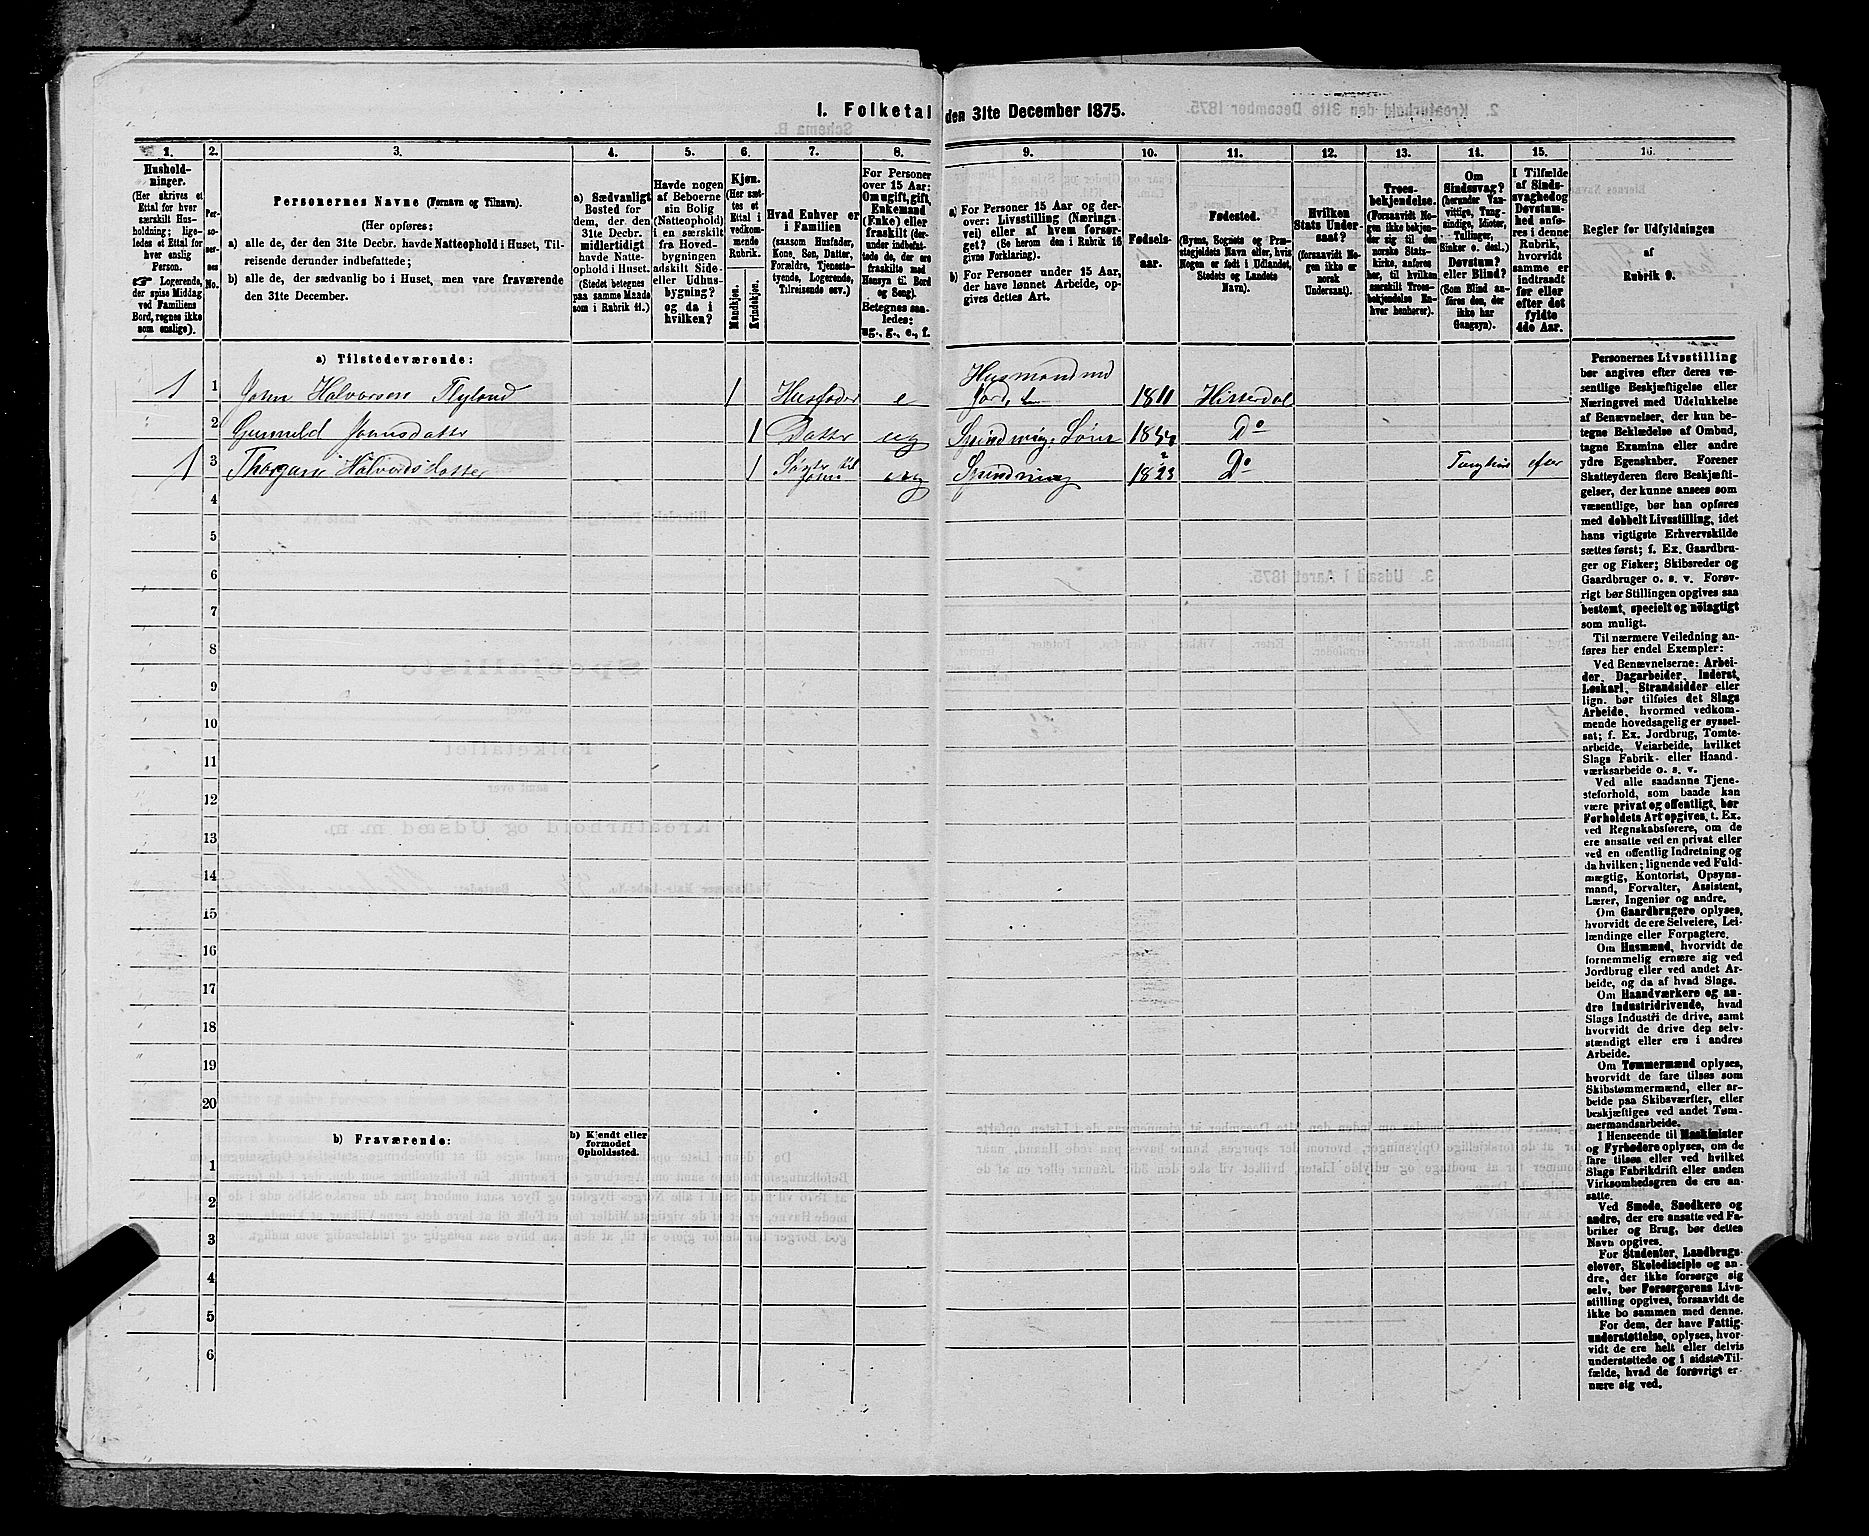 I. Folketal den 31te December 1875.
1.
2.
3.
4.
5.
6.
7.
8.
9.
10.
11.
12.
13.
14.
15.
16.
Hushold-
ninger.
(Her skrives et
Ettal for hver
særskilt Hus-
holdning; lige-
ledes et Ettal for
hver enslig
Person.
☞ Logerende,
der spise Middag
ved Familiens
Bord, regnes ikke
som enslige).
Per-
soner-
nes
No.
Personernes Navne (Fornavn og Tilnavn).
(Her opføres:
a) alle de, der den 31te Decbr. havde Natteophold i Huset, Til-
reisende derunder indbefattede;
b) alle de, der sædvanlig bo i Huset, men vare fraværende
den 31te December.
a) Sædvanligt
Bosted for
dem, der den
31te Decbr.
midlertidigt
havde Natte-
ophold i Huset.
(Stedet betegnes
paa samme Maade
som i Rubrik 11.)
Havde nogen
af Beboerne
sin Bolig
(Natteophold)
i en særskilt
fra Hoved-
bygningen
adskilt Side-
eller Udhus-
bygning?
og da i
hvilken?
Kjøn.
(Her sæt-
tes et
Ettal i
vedkom-
mende
Rubrik.
Mandkjøn.
Kvindekjøn.
Hvad Enhver er
i Familien
(saasom Husfader,
Kone, Søn, Datter,
Forældre, Tjeneste-
tyende, Logerende,
Tilreisende osv.)
For Personer
over 15 Aar:
Om ugift, gift,
Enkemand
(Enke) eller
fraskilt (der-
under indbefat-
tede de, der ere
fraskilte med
Hensyn til Bord
og Seng).
Betegnes saa-
ledes:
ug., g., e., f.
a) For Personer 15 Aar og der-
over: Livsstilling (Nærings-
vei) eller af hvem forsør-
get? (Se herom den i Rubrik 16
givne Forklaring).
b) For Personer under 15 Aar,
der have lønnet Arbeide, op-
gives dettes Art.
Fødsels-
aar.
Fødested.
(Byens, Sognets og Præ-
stegjeldets Navn eller, hvis
Nogen er født i Udlandet,
Stedets og Landets
Navn).
Hvilken
Stats Under-
saat?
(forsaavidt No-
gen ikke er
norsk
Undersaat).
Troes-
bekjendelse.
(Forsaavidt No-
gen ikke bekjen-
der sig til den
norske Stats-
kirke, anføres
her, til hvilken
særskilt Troes-
bekjendelse En-
hver henhører).
Om
Sindssvag?
(herunder Van-
vittige, Tung-
sindige, Idioter,
Tullinger,
Sinker o. desl.)
Døvstum?
eller Blind?
(Som Blind an-
føres den, der
ikke har
Gangsyn).
I Tilfælde
af Sinds-
svaghed og
Døvstum-
hed anfø-
res i denne
Rubrik,
hvorvidt
samme er
indtraadt
før eller
efter det
fyldte
4de Aar.
Regler for Udfyldningen
af
Rubrik 9.
a) Tilstedeværende:
1 1 John Halvorsen Flyland 1 Husfader e Husmand med
Jord 1811 Hitterdal
2 Gunnild Jonsdatter 1 Datter ug Spinding 18 Do
1 3 Halvordsdatter 1 Søster til ug Spinding 1823 Do efter
4
5
6
7
8
9
10
11
12
13
14
15
16
17
18
19
20
b) Fraværende:
b) Kjendt eller
formodet
Opholdssted.
1
2
3
4
5
6
Personernes Livsstilling
bør angives efter deres væ-
sentlige Beskjæftigelse eller
Næringsvei med Udelukkelse
af Benævnelser, der kun be-
tegne Beklædelse af Ombud,
tagne Examina eller andre
ydre Egenskaber. Forener
Skatteyderen flere Beskjæfti-
gelser, der kunne ansees som
væsentlige, bør han opføres
med dobbelt Livsstilling, idet
hans vigtigste Erhvervskilde
sættes først; f. Ex. Gaardbru-
ger og Fisker; Skibsreder og
Gaardbruger o. s. v. Forøv-
rigt bør Stillingen opgives saa
bestemt, specielt og nøiagtigt
som muligt.
Til nærmere Veiledning an-
føres her endel Exempler:
Ved Benævnelserne: Arbei-
der, Dagarbeider, Inderst,
Løskarl, Strandsidder eller
lign. bør tilføies det Slags
Arbeide, hvormed vedkom-
mende hovedsagelig er syssel-
sat; f. Ex. Jordbrug, Tomte-
arbeide, Veiarbeide, hvilket
Slags Fabrik- eller Haand-
værksarbeide o. s. v.
Ved alle saadanne Tjene-
steforhold, som baade kan
være privat og offentligt, bør
Forholdets Art opgives, t. Ex.
ved Regnskabsførere, om de
ere ansatte ved en privat eller
ved en offentlig Indretning og
da hvilken; lignende ved Fuld-
mægtig, Kontorist, Opsyns-
mand, Forvalter, Assistent,
Lærer, Ingeniør og andre.
Om Gaardbrugere oplyses,
hvorvidt de ere Selveiere, Lei-
lændinge eller Forpagtere.
Om Husmænd, hvorvidt de
fornemmelig ernære sig ved
Jordbrug eller ved andet Ar-
beide, og da af hvad Slags.
Om Haandværkere og an-
dre Industridrivende, hvad
Slags Industri de drive, samt
hvorvidt de drive den selv-
stændigt eller ere i andres
Arbeide.
Om Tømmermænd oplyses,
hvorvidt de fare tilsøs som
Skibstømmermænd, eller ar-
beide paa Skibsværfter, eller
beskjæftiges ved andet Tøm-
mermandsarbeide.
I Henseende til Maskinister
og Fyrbødere oplyses, om de
fare tilsøs eller ved hvilket
Slags Fabrikdrift eller anden
Virksomhedsgren de ere an-
satte.
Ved Smede, Snedkere og
andre, der ere ansatte ved Fa-
briker og Brug, bør dettes
Navn opgives.
For Studenter, Landbrugs-
elever, Skoledisciple og an-
dre, der ikke forsørge sig
selv, bør Forsørgerens Livs-
stilling opgives, forsaavidt de
ikke bo sammen med denne.
For dem, der have Fattig-
understøttelse, oplyses, hvor-
vidt de ere helt eller delvis
understøttede og i sidste Til-
fælde, hvad de forøvrigt er-
nære sig ved.